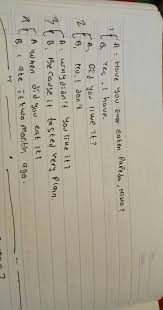 1 { A: Have you ever eaten Papeda, NIKO?
B: Yes, I have.
2 { A: Did you like it?
B: No, I don't
3 { A: Why didn't you like it?
B: Because it tasted very Plain.
4 { A: When did you eat it?
B: I ate it two month ago.